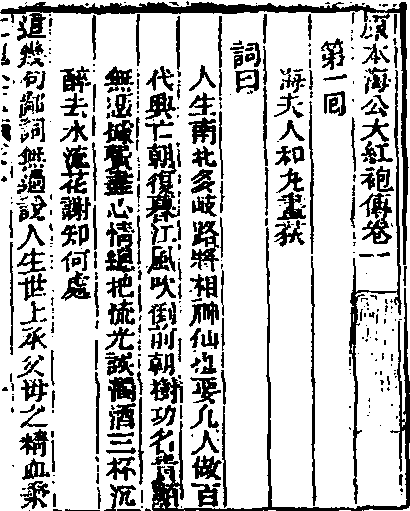 原本海公大紅袍傳卷一
第一回
海夫人和丸畫荻
詞曰
人生南北多岐路將相神仙也要凡人做百
代興亡朝復暮江風吹倒前朝樹功名
無憑據費盡心情總把流光誤濁酒三杯沉
醉去水流花謝知何處
這幾句鄙詞無過說人生世上承父母之精血